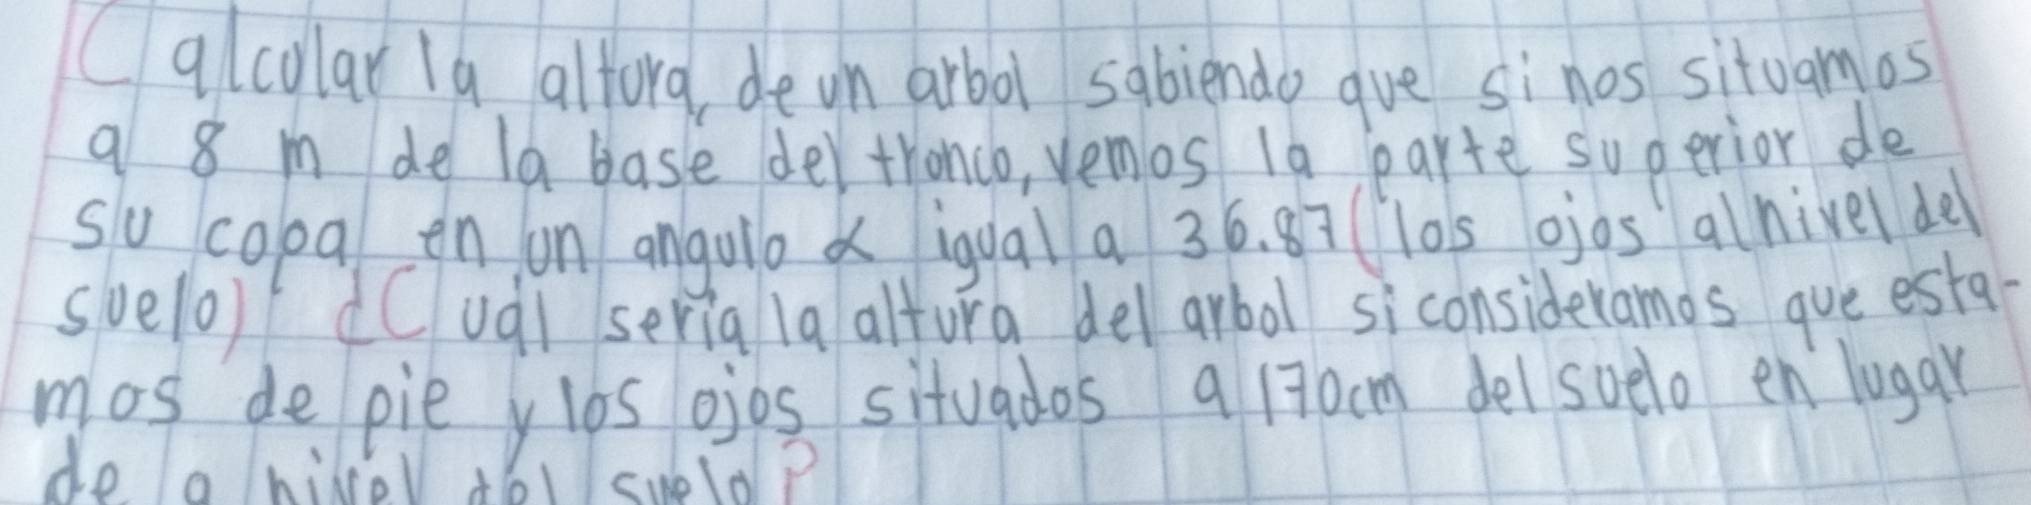 Calcular la altura, de un arbol sabiendo que si nos situamos
a 8 m de la base del tronco, vemos la parte superior de
su copa en un angulo α igual a 36.87 (los ojos al nivel del
suelo) ¿Cuál sería la altura del arbol si consideramos que esta-
mos de pie y los ojos situados a 170cm del suelo en lugar
de a nivel del suelo?